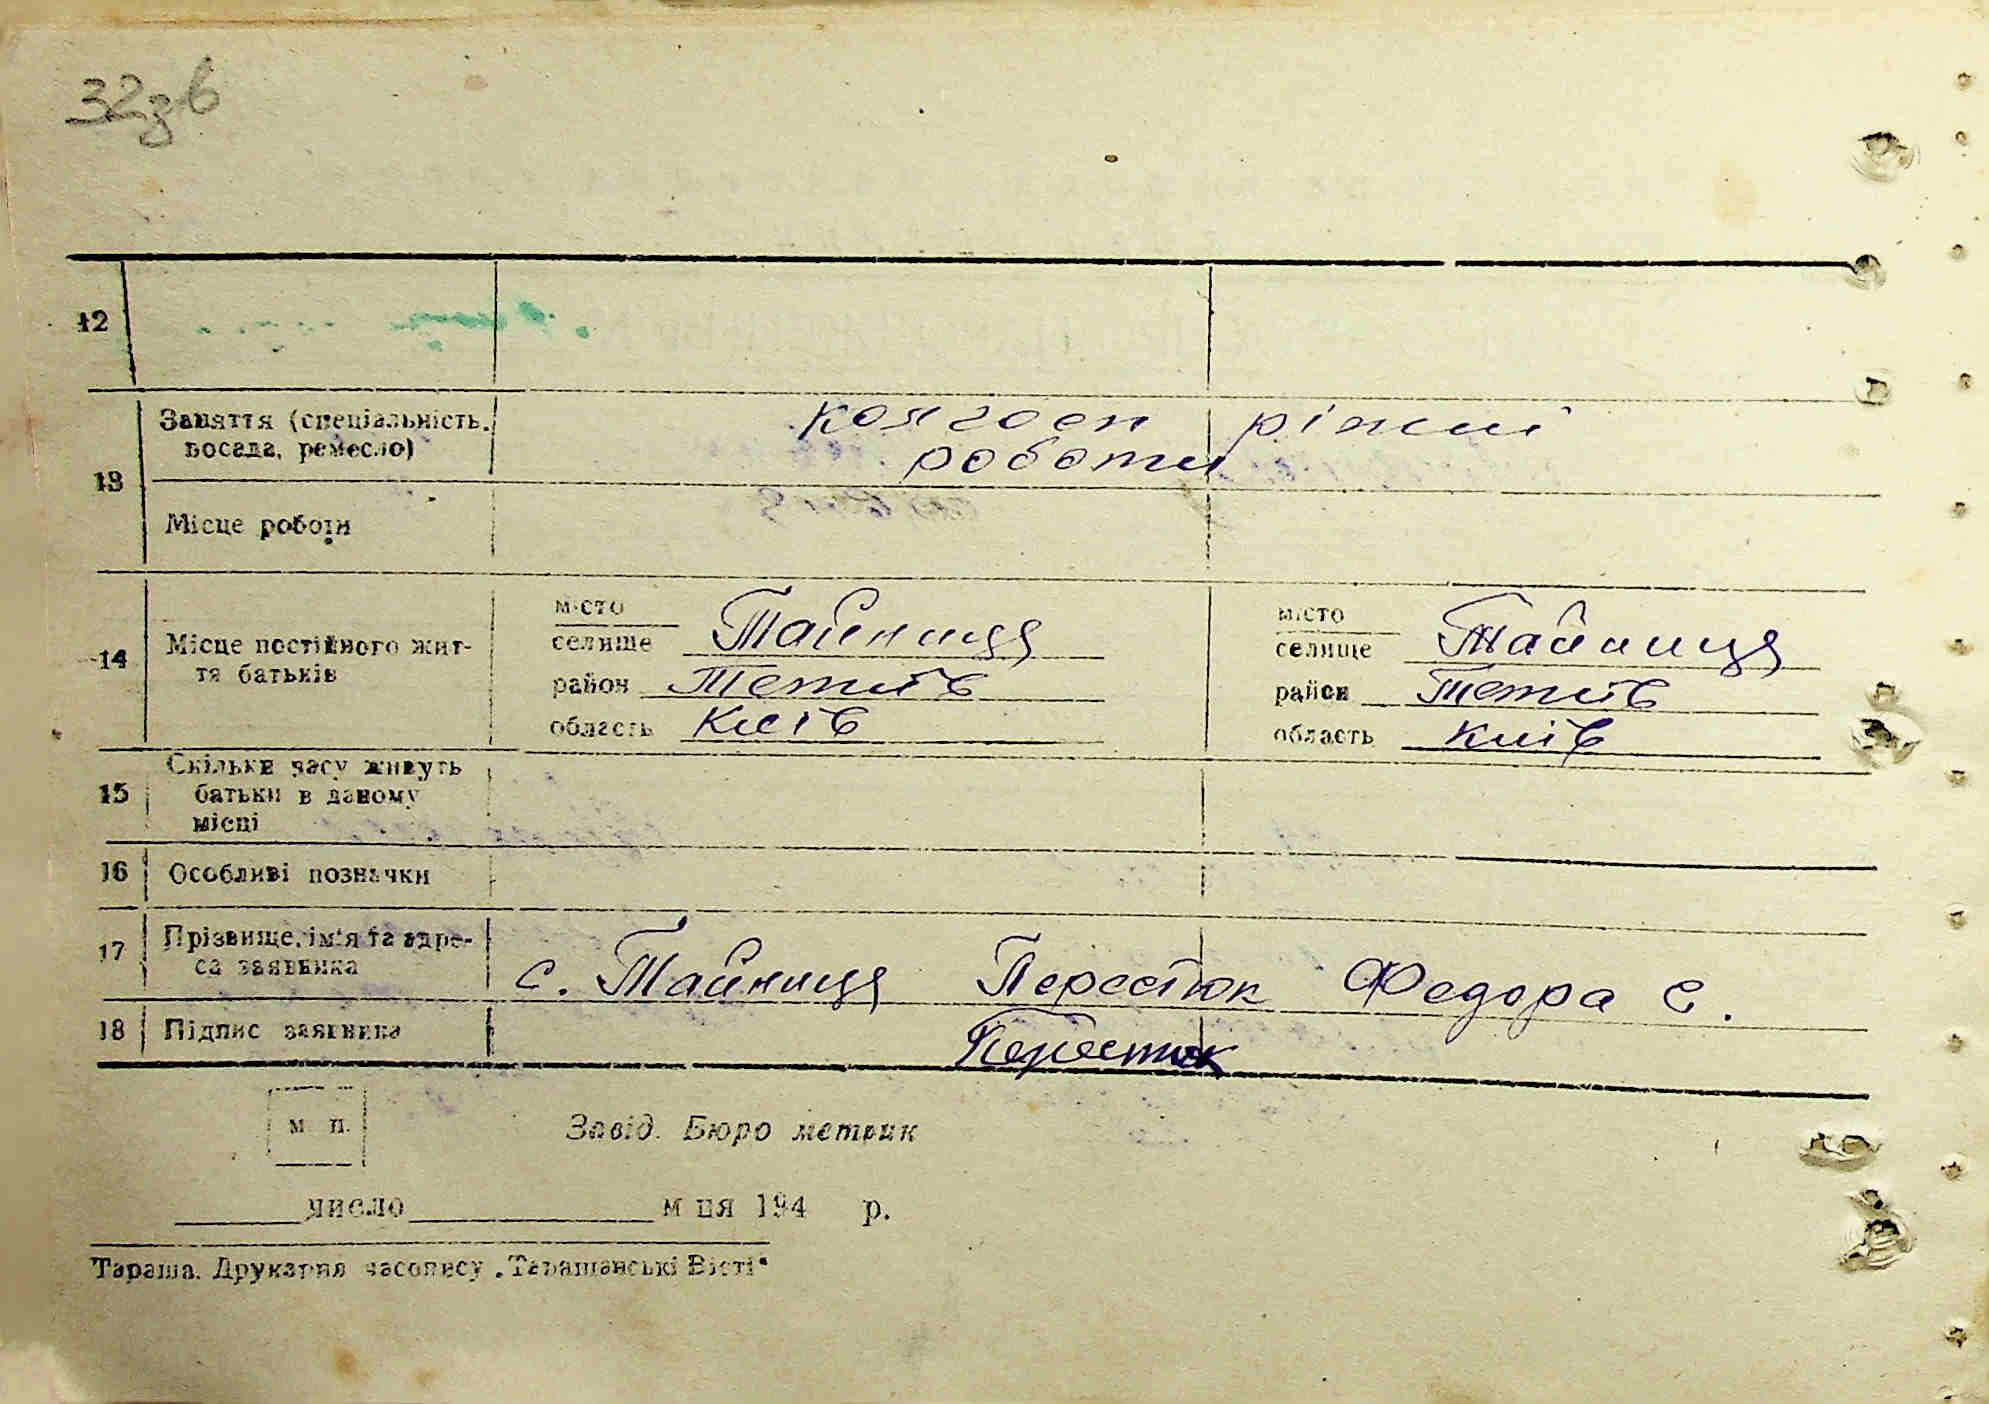 32зв
12
13 Заняття (спеціальність, посада, ремесло) колгосп ріжні
роботи
Місце роботи
14 Місце постійного життя батьків
місто місто
селище Тайниця селище Тайниця
район Тетиїв район Тетиїв
область Київ область Київ
15 Скільки часу живуть
батьки в даному
місці
16 Особливі позначки
17 Прізвище, ім'я та адре-
са заявника с. Тайниця Перестюк Федора С.
18 Підпис заявника Перестюк
м. п. Завід. Бюро метрик
число м ця 194 р.
Тараща. Друкарня часопису „Таращанські Вісті"